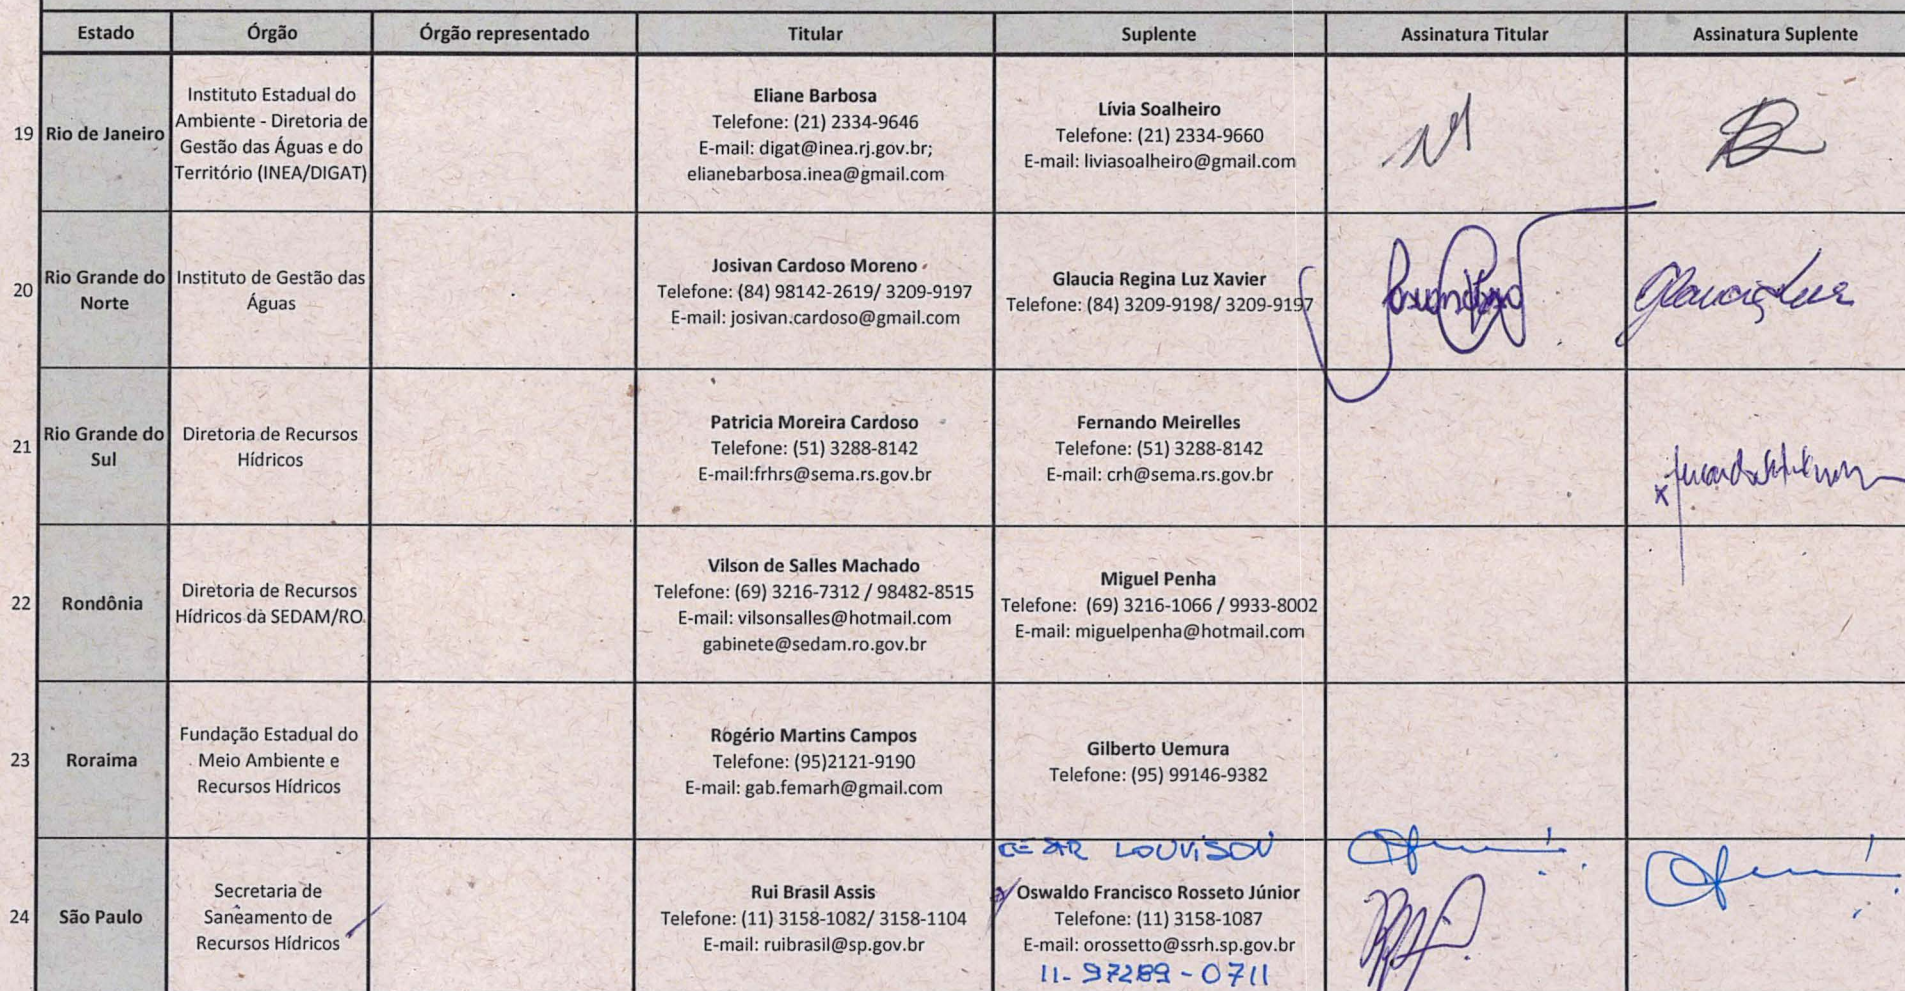 Estado Órgão Órgão representado Titular Suplente Assinatura Titular Assinatura Suplente
19
Rio de Janeiro
Instituto Estadual do
Ambiente - Diretoria de
Gestão das Águas e do
Território (INEA/DIGAT)
Eliane Barbosa
Telefone: (21) 2334-9646
E-mail: digat@inea.rj.gov.br;
elianebarbosa.inea@gmail.com
Lívia Soalheiro
Telefone: (21) 2334-9660
E-mail: liviasoalheiro@gmail.com
20
Rio Grande do
Norte
Instituto de Gestão das
Águas
Josivan Cardoso Moreno
Telefone: (84) 98142-2619/ 3209-9197
E-mail: josivan.cardoso@gmail.com
Glaucia Regina Luz Xavier
Telefone: (84) 3209-9198/ 3209-9197
Glaucia Luz
21
Rio Grande do
Sul
Diretoria de Recursos
Hídricos
Patricia Moreira Cardoso
Telefone: (51) 3288-8142
E-mail:frhrs@sema.rs.gov.br
Fernando Meirelles
Telefone: (51) 3288-8142
E-mail: crh@sema.rs.gov.br
22
Rondônia
Diretoria de Recursos
Hídricos da SEDAM/RO
Vilson de Salles Machado
Telefone: (69) 3216-7312 / 98482-8515
E-mail: vilsonsalles@hotmail.com
gabinete@sedam.ro.gov.br
Miguel Penha
Telefone: (69) 3216-1066 / 9933-8002
E-mail: miguelpenha@hotmail.com
23
Roraima
Fundação Estadual do
Meio Ambiente e
Recursos Hídricos
Rogério Martins Campos
Telefone: (95)2121-9190
E-mail: gab.femarh@gmail.com
Gilberto Uemura
Telefone: (95) 99146-9382
24
São Paulo
Secretaria de
Saneamento de
Recursos Hídricos
Rui Brasil Assis
Telefone: (11) 3158-1082/ 3158-1104
E-mail: ruibrasil@sp.gov.br
CEZAR LOUVISON
Oswaldo Francisco Rosseto Júnior
Telefone: (11) 3158-1087
E-mail: orossetto@ssrh.sp.gov.br
11-97289-0711